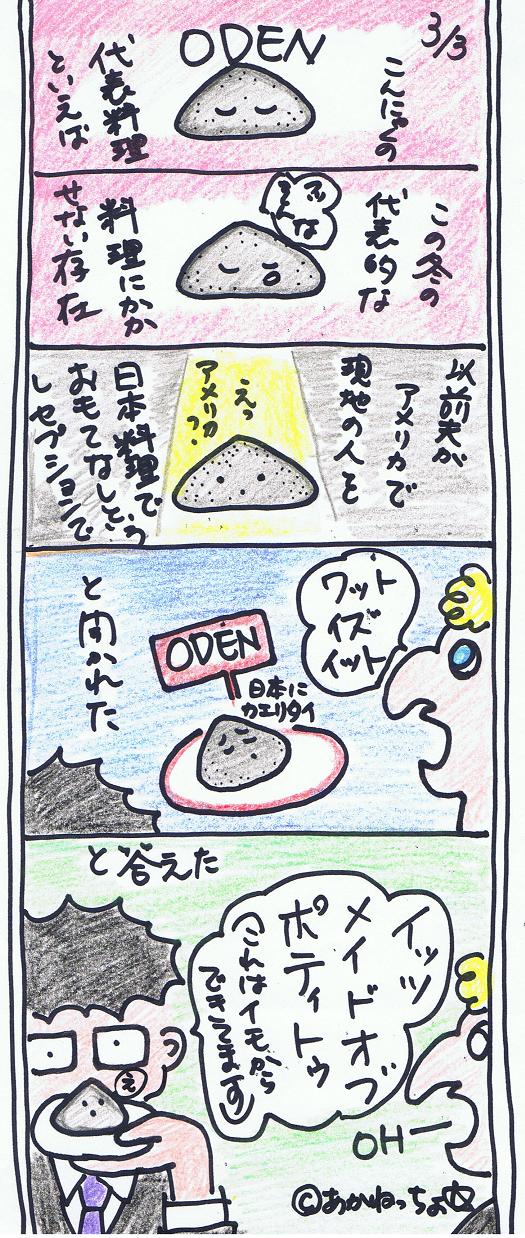 3/3
ODEN
こんにゃくの
代表料理
といえば
この冬の
代表的な
料理にかか
せない存在
以前夫が
アメリカで
現地の人を
えっ
アメリカ??
日本料理で
おもてなしという
レセプションで
ワット
イズ
イット
ODEN
日本に
カエリタイ
と聞かれた
と答えた
イッツ
メイドオブ
ポティトゥ
(これはイモから
できてます)
え
OHー
©あかねっちょ☆